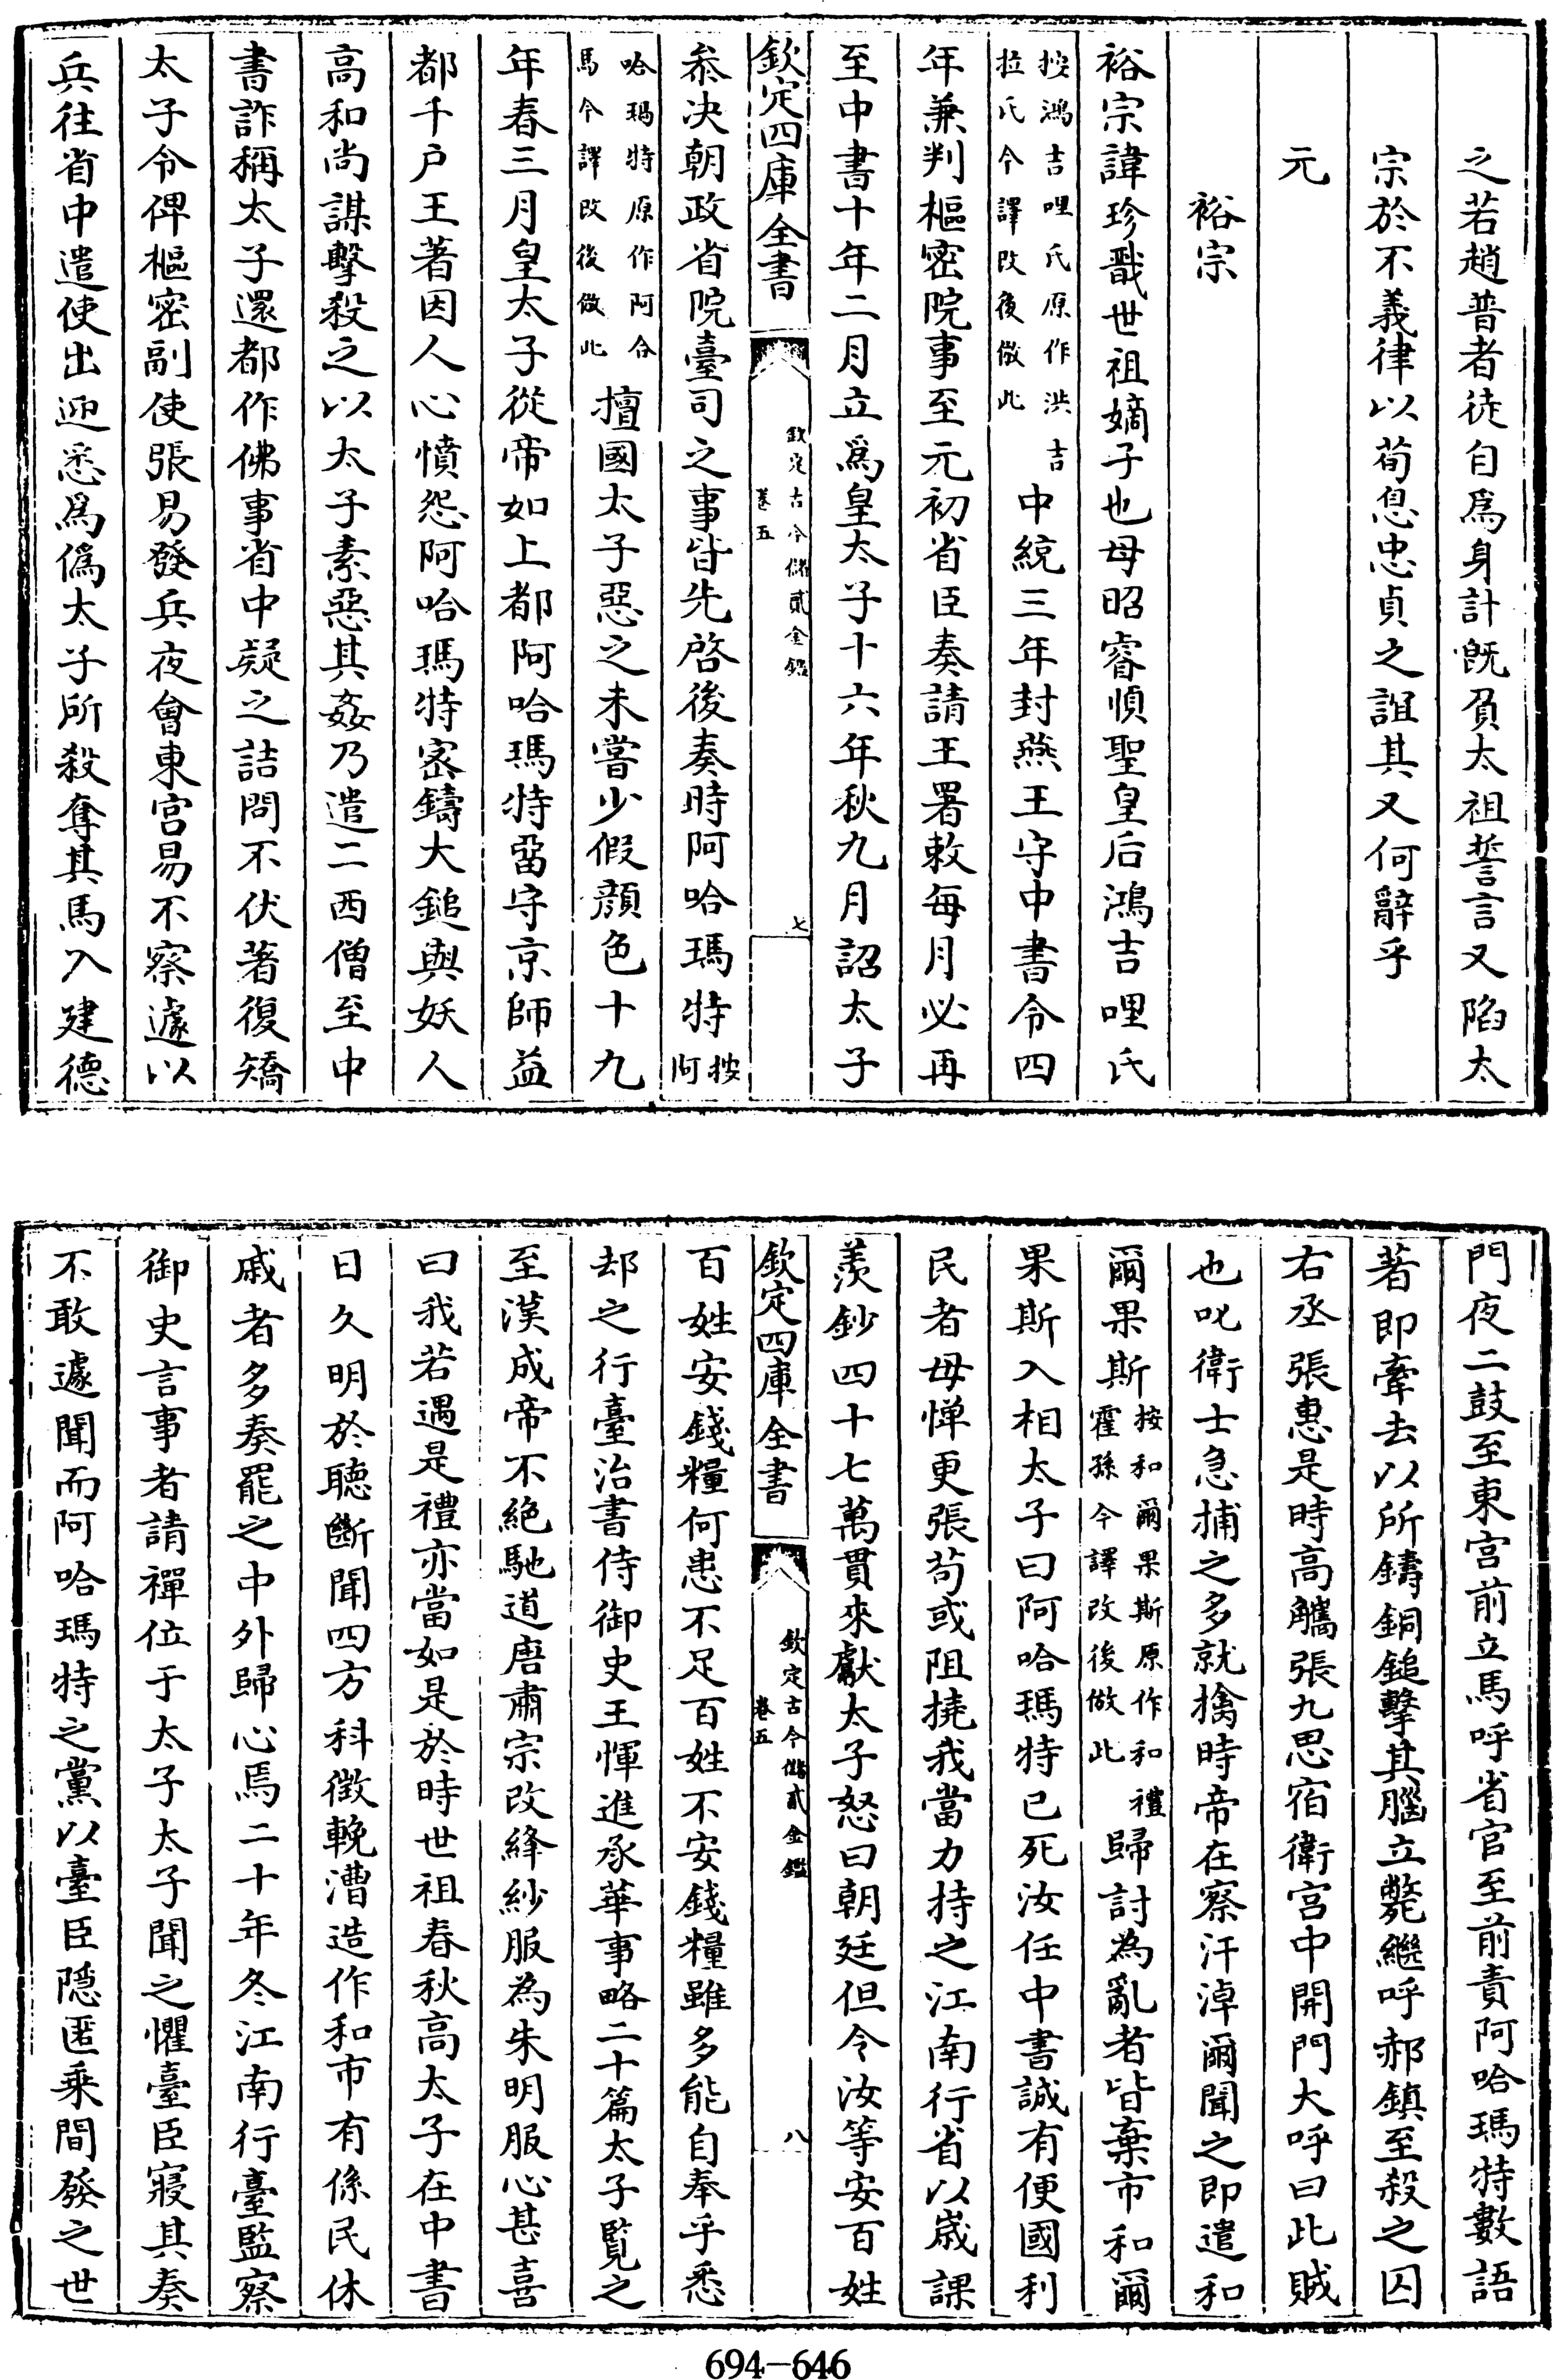 之若趙普者徒自爲身計既負太祖誓言又陷太
宗於不義律以荀息忠貞之誼其又何辭乎
元
裕宗
裕宗諱珍戩世祖嫡子也母昭睿順聖皇后鴻吉哩氏
按鴻吉哩氏原作洪吉
拉氏今譯改後倣此
中統三年封燕王守中書令四
年兼判樞密院事至元初省臣奏請王署敕每月必再
至中書十年二月立爲皇太子十六年秋九月詔太子
欽定四庫全書
欽定古今儲貳金鑑
卷五
七
叅决朝政省院臺司之事皆先啓後奏時阿哈瑪特
按
阿
哈瑪特原作阿合
馬今譯改後倣此
擅國太子惡之未嘗少假顔色十九
年春三月皇太子從帝如上都阿哈瑪特留守京師益
都千户王著因人心憤怨阿哈瑪特密鑄大鎚與妖人
高和尚謀擊殺之以太子素惡其姦乃遣二西僧至中
書詐稱太子還都作佛事省中疑之詰問不伏著復矯
太子令俾樞密副使張易發兵夜會東宫易不察遽以
兵往省中遣使出迎悉爲僞太子所殺奪其馬入建德
門夜二鼓至東宫前立馬呼省官至前責阿哈瑪特數語
著即牽去以所鑄銅鎚擊其腦立斃繼呼郝鎮至殺之囚
右丞張惠是時高觿張九思宿衛宫中開門大呼曰此賊
也叱衛士急捕之多就擒時帝在察汗淖爾聞之即遣和
爾果斯
按和爾果斯原作和禮
霍孫今譯改後倣此
歸討為亂者皆棄市和爾
果斯入相太子曰阿哈瑪特已死汝任中書誠有便國利
民者毋憚更張苟或阻撓我當力持之江南行省以嵗課
羨鈔四十七萬貫來獻太子怒曰朝廷但令汝等安百姓
欽定四庫全書
欽定古今儲貳金鑑
卷五
八
百姓安錢糧何患不足百姓不安錢糧雖多能自奉乎悉
却之行臺治書侍御史王惲進承華事略二十篇太子覧之
至漢成帝不絶馳道唐肅宗改絳紗服為朱明服心甚喜
曰我若遇是禮亦當如是於時世祖春秋高太子在中書
日久明於聽斷聞四方科徵輓漕造作和市有係民休
戚者多奏罷之中外歸心焉二十年冬江南行臺監察
御史言事者請禪位于太子太子聞之懼臺臣寢其奏
不敢遽聞而阿哈瑪特之黨以臺臣隠匿乘間發之世
694-646